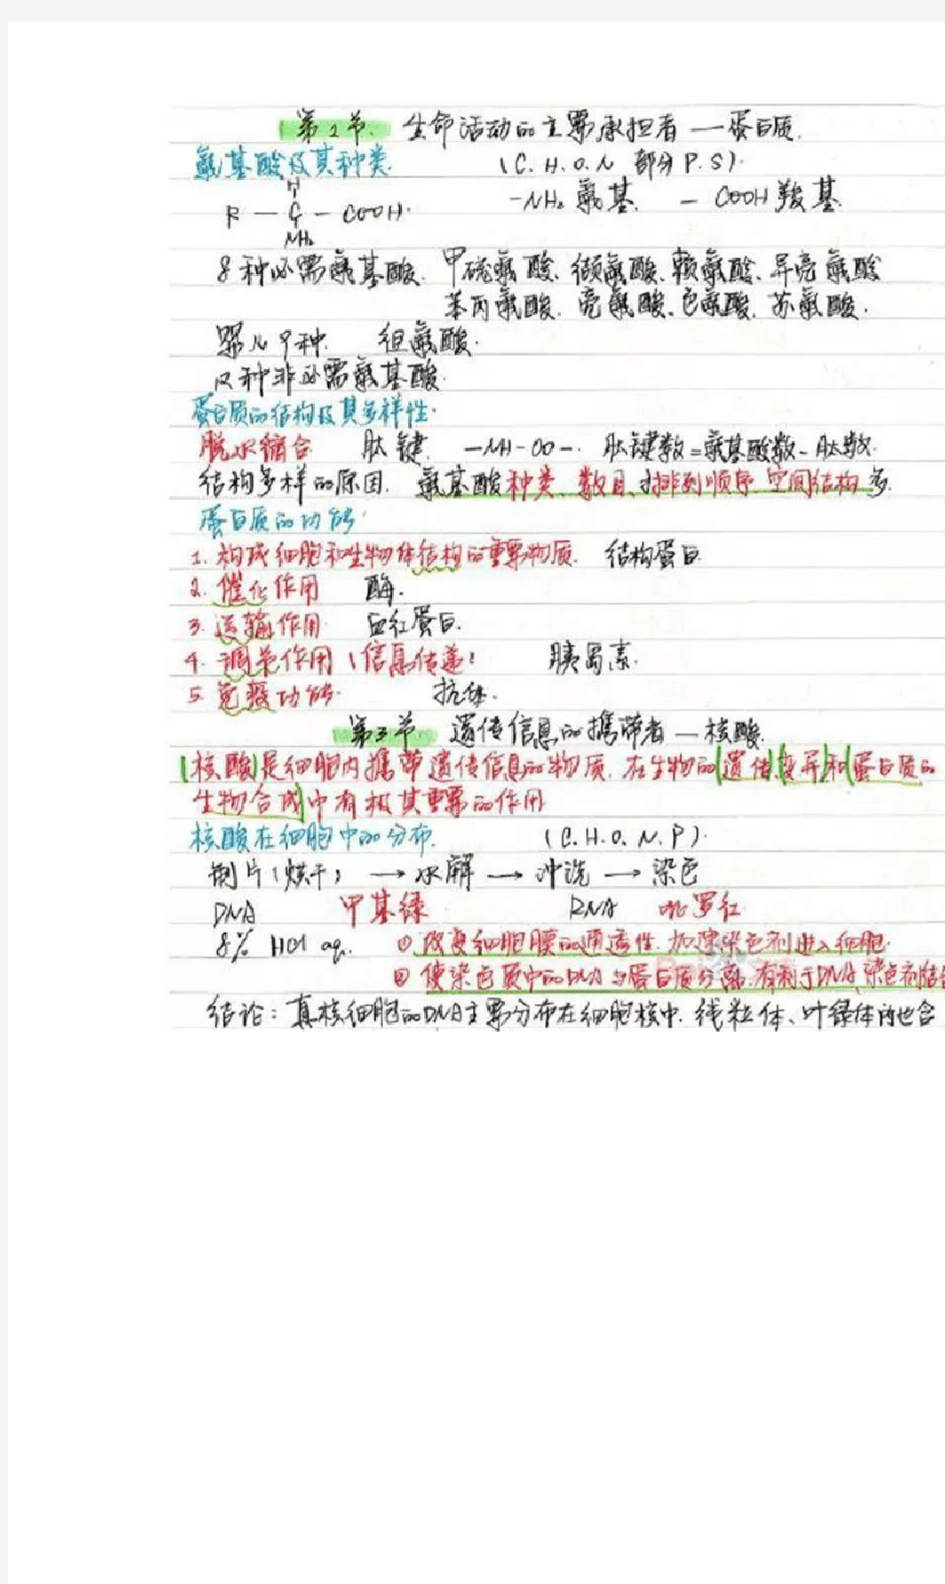 第2节. 生命活动的主要承担者 — 蛋白质.
氨基酸及其种类. (C. H. O. N 部分 P. S).
H
R — C — COOH. -NH₂ 氨基. - COOH 羧基.
NH₂
8种必需氨基酸. 甲硫氨酸、缬氨酸、赖氨酸、异亮氨酸
苯丙氨酸. 亮氨酸、色氨酸. 苏氨酸.
婴儿9种. 组氨酸.
12种非必需氨基酸.
蛋白质的结构及其多样性.
脱水缩合 肽键. -NH-CO-. 肽键数=氨基酸数-肽数.
结构多样的原因. 氨基酸种类、数目、排列顺序 空间结构多.
蛋白质的功能.
1. 构成细胞和生物体结构的重要物质. 结构蛋白.
2. 催化作用 酶.
3. 运输作用. 血红蛋白.
4. 调节作用(信息传递) 胰岛素.
5. 免疫功能. 抗体.
第3节 遗传信息的携带者 — 核酸.
核酸是细胞内携带遗传信息的物质. 在生物的遗传、变异和蛋白质的
生物合成中有极其重要的作用
核酸在细胞中的分布. (C. H. O. N. P).
制片(烘干) → 水解 → 冲洗 → 染色
DNA 甲基绿 RNA 吡罗红
8% HCl aq. ① 改变细胞膜的通透性. 加速染色剂进入细胞.
② 使染色质中的DNA与蛋白质分离. 有利于DNA、染色剂结合
结论: 真核细胞的DNA主要分布在细胞核中. 线粒体、叶绿体内也含